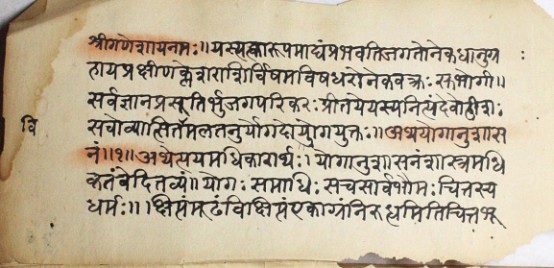 श्रीगणेशायनमः॥यस्त्यक्त्वारूपमाद्यंप्रभवतिजगतोनेकधानुग्र
हायप्रक्षीणक्लेशराशिर्विषमविषधरोनेकवक्त्रः सुभोगी॥
सर्वज्ञानप्रसूतिर्भुजगपरिकरःप्रीतयेयस्यनित्यंदेवोहीशः
वि
सवोव्यात्सितविमलतनुर्योगदोयोगयुक्तः॥अथयोगानुशास
नं॥१॥अथेत्ययमधिकारार्थः।योगानुशासनंशास्त्रमधि
कृतंवेदितव्यं॥योगः समाधिः सचसार्वभौमः चित्तस्य
धर्मः॥।क्षिप्तंमूढंविक्षिप्तंएकाग्रंनिरुद्धमितिचित्तभू